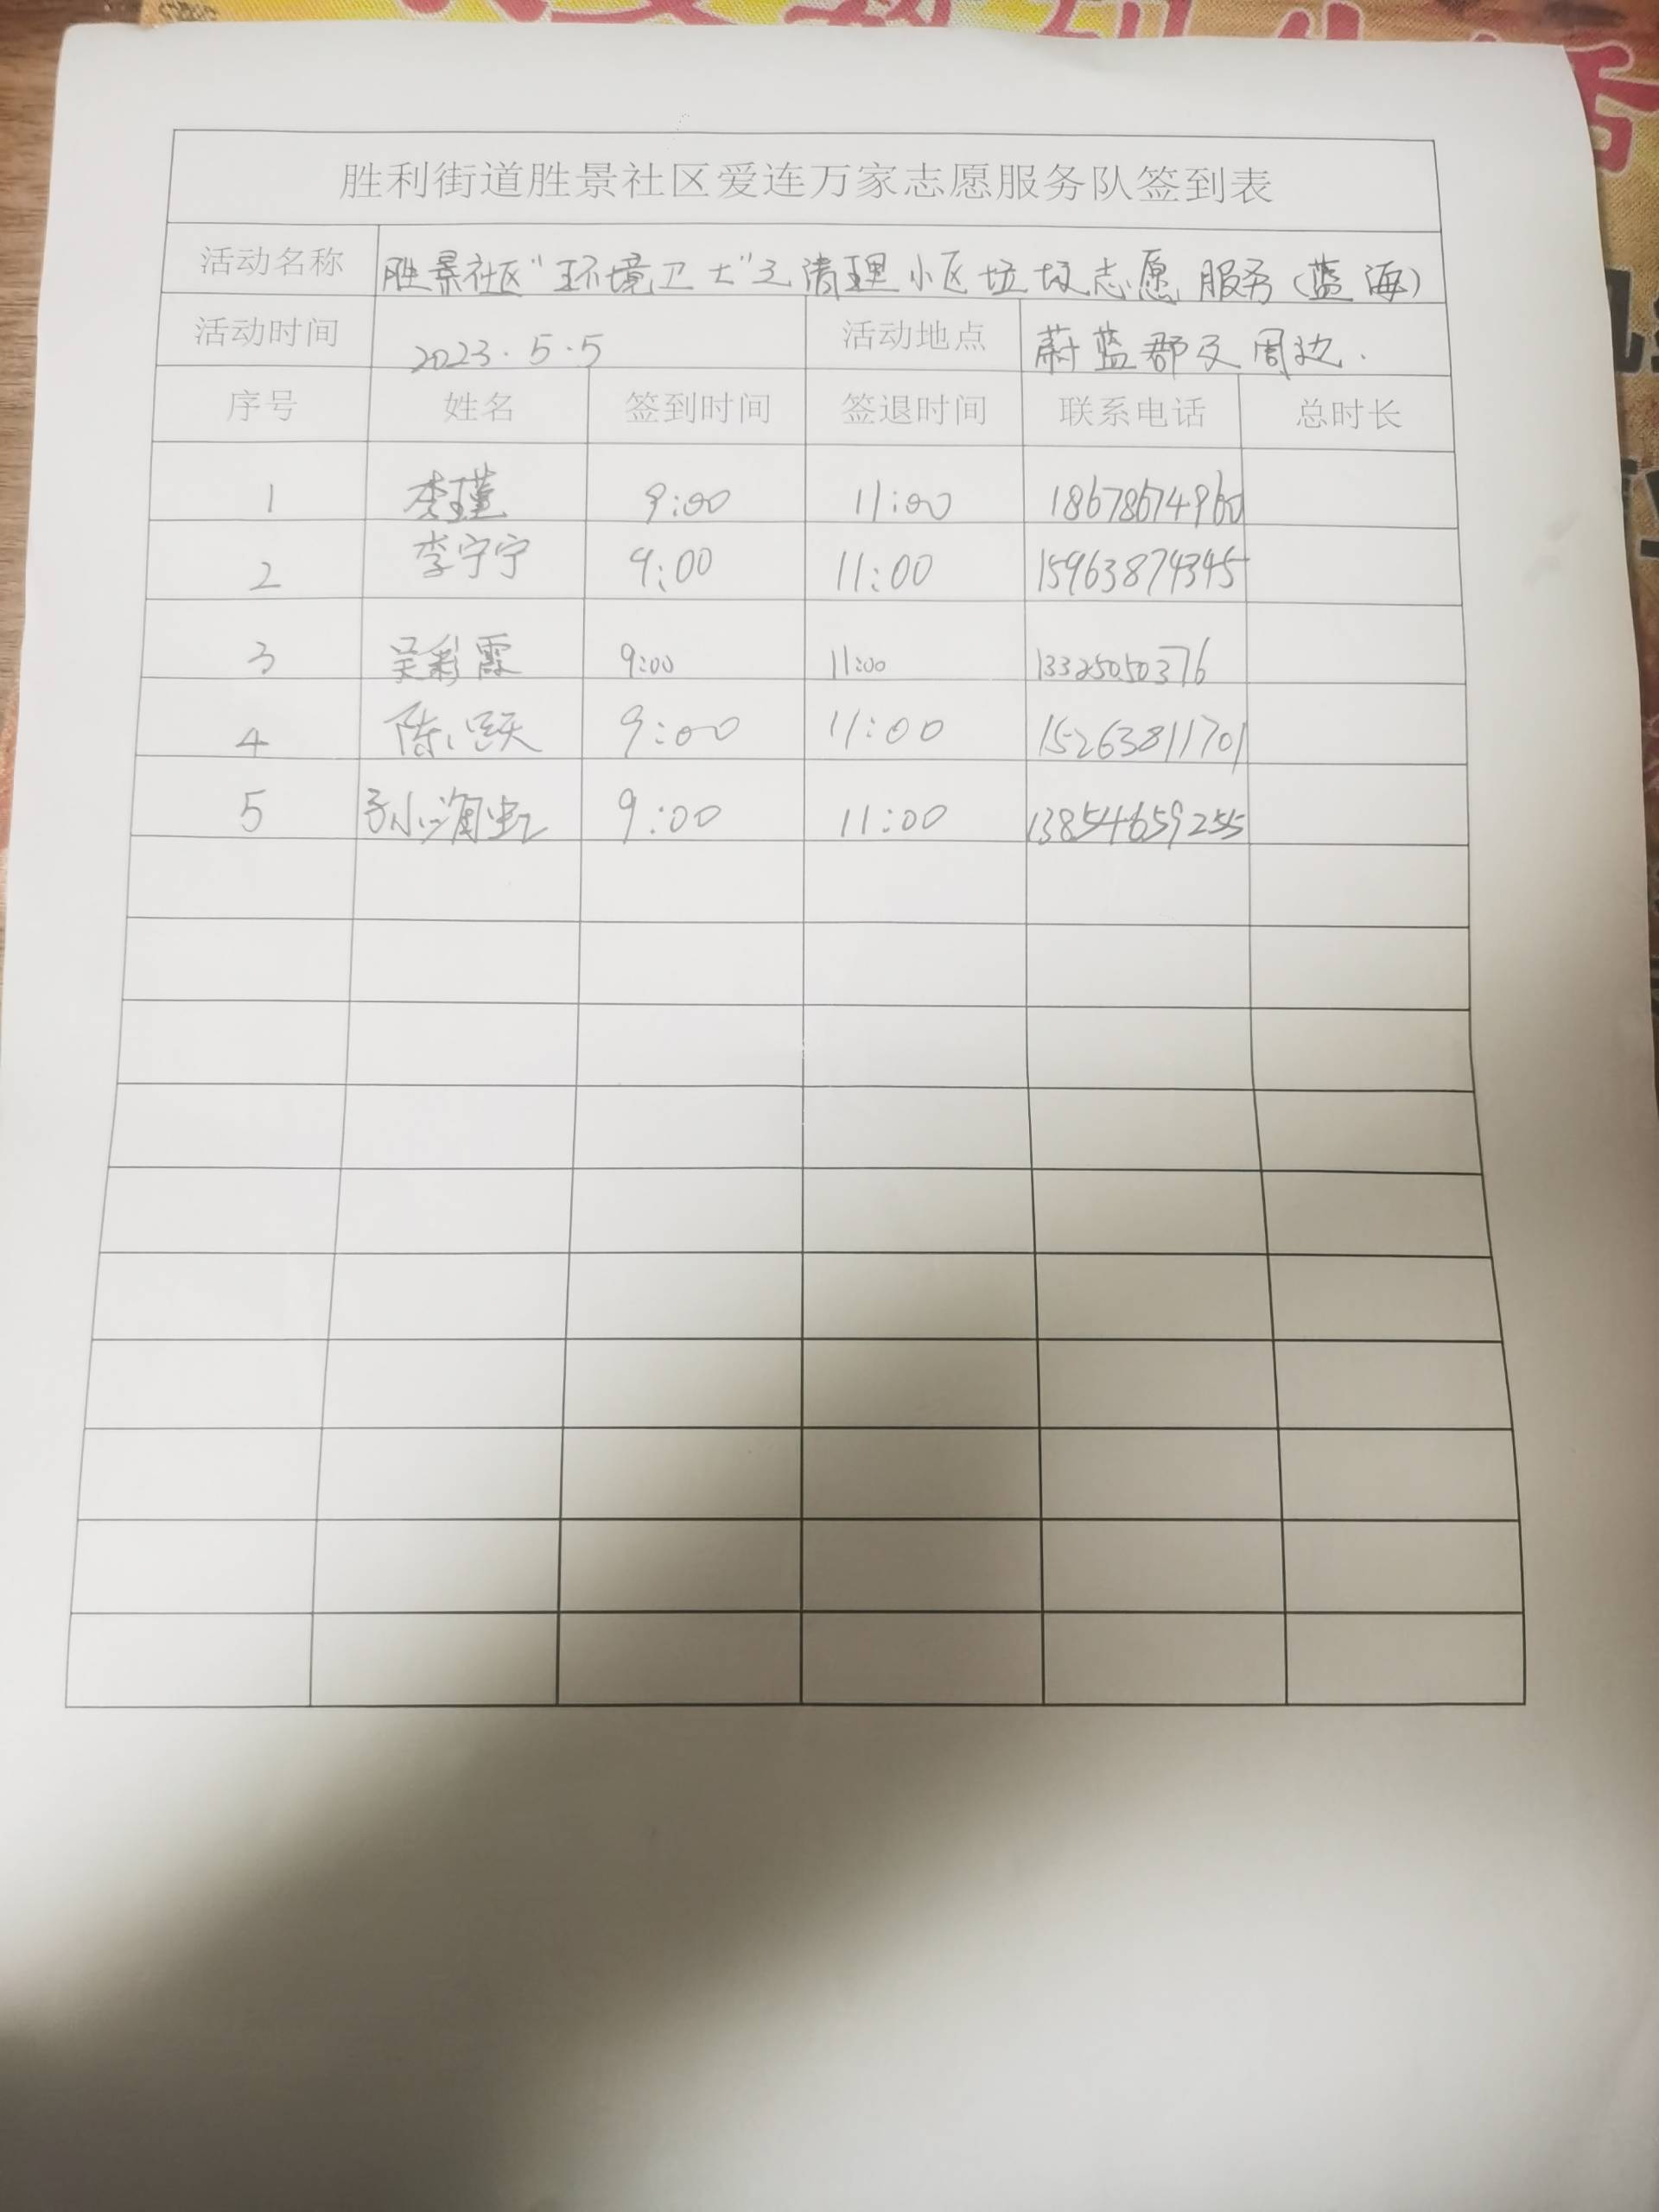 胜利街道胜景社区爱连万家志愿服务队签到表
活动名称 胜景社区“环境卫士”之清理小区垃圾志愿服务(蓝海)
活动时间 2023.5.5 活动地点 蔚蓝郡及周边.
序号 姓名 签到时间 签退时间 联系电话 总时长
1 李瑾 9:00 11:00 18678674960
2 李宁宁 9:00 11:00 15963874345
3 吴彩霞 9:00 11:00 13325050376
4 陈 9:00 11:00 15263811701
5 孙海虹 9:00 11:00 13854659255